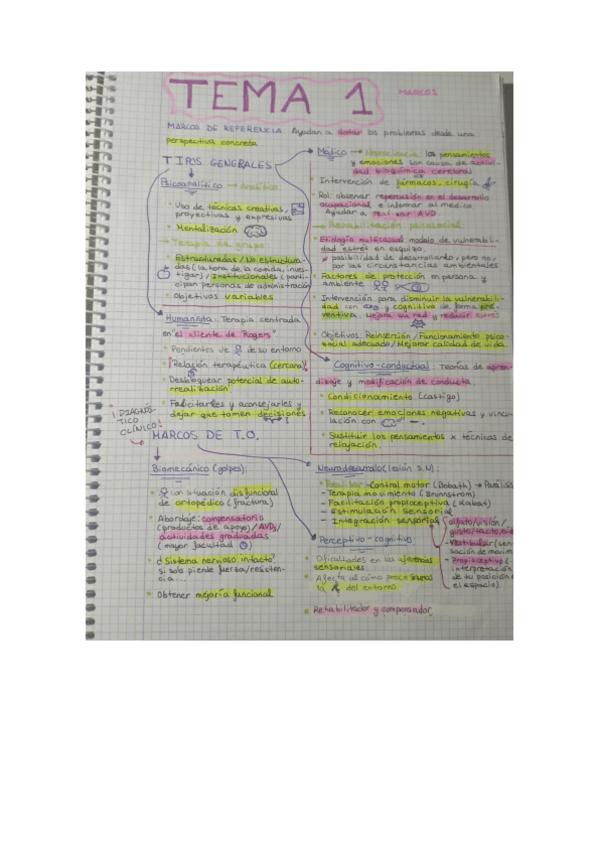 TEMA 1
MARCOS
MARCOS DE REFERENCIA: Ayudan a dotar los problemas desde una
perspectiva concreta
TIPOS GENERALES
Psicoanalítico → Analítica
• Uso de técnicas creativas,
proyectivas y expresivas
• Mentalización
→ Terapia de grupo
• Estructuradas / No estructura-
das (la hora de la comida, inves-
tigar) / Institucionales (parti-
cipan personas de administración
• Objetivos variables
Humanista: Terapia centrada
en "el cliente de Rogers"
• Pendientes de su entorno
• Relación terapéutica (cercana)
• Desbloquear potencial de auto-
rrealización
• Facilitarles y aconsejarles y
dejar que tomen decisiones
Médico → Neurociencia: los pensamientos
y emociones son causa de activi-
dad bioquímica cerebral
• Intervención de fármacos, cirugía
• Rol: observar repercusión en el desarrollo
ocupacional e informar al médico.
Ayudar a realizar AVD
→ Rehabilitación psicosocial
• Etiología multicausal modelo de vulnerabili-
dad estrés en esquizo.
posibilidad de desarrollarlo, pero no,
por las circunstancias ambientales
• Factores de protección en persona y
ambiente
• Intervención para disminuir la vulnerabili-
dad con y cognitivo de forma pre-
ventiva. Mejora su red y reducir estrés
• Objetivos: Reinserción / Funcionamiento psico-
social adecuado / Mejorar calidad de vida
Cognitivo-conductual: Teorías de apren-
dizaje y modificación de conducta
• Condicionamiento (castigo)
• Reconocer emociones negativas y vincu-
lación con
• Sustituir los pensamientos x técnicas de
relajación.
¡DIAGNÓS
TICO
CLÍNICO!
MARCOS DE T.O.
Biomecánico (golpes):
• con situación disfuncional
de ortopédico (fractura)
• Abordaje: compensatorio
(productos de apoyo) / AVDs /
actividades graduadas
(mayor facultad
• Sistema nervioso intacto
si solo pierde fuerza/resisten-
cia...
• Obtener mejoría funcional
Neurodesarrollo (lesión S.N):
Control motor (Bobath) → Parálisis
- Terapia movimiento (Brunnstrom)
- Facilitación propioceptiva (Kabat)
- Estimulación sensorial
- Integración sensorial
olfato/visión/
gusto/tacto/
- Vestibular (sen-
sación de movim
- Propioceptivo (
interpretación
de tu posición
el espacio)
Perceptivo-cognitivo
• Dificultades en las aferencias
sensoriales
• Afecta al cómo procesamos
la del entorno.
• Rehabilitador y compensador